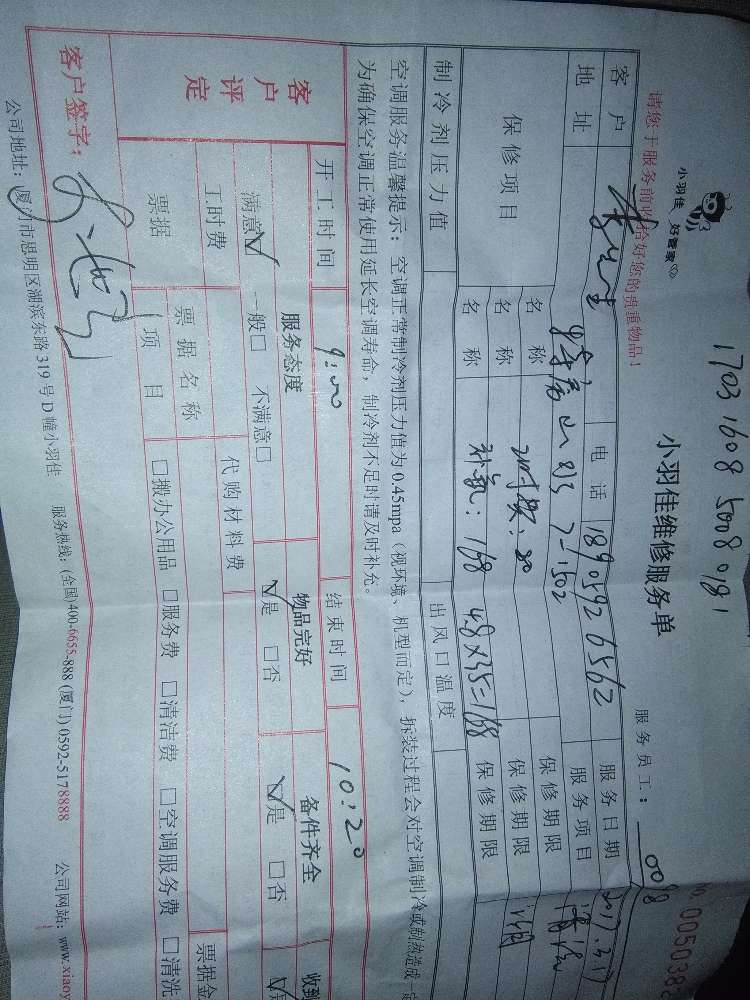 1703 1608 5008 0181
小羽佳 好管家
小羽佳维修服务单
服务员工：0098
005038
请您于服务前收拾好您的贵重物品！
客户 电话 18905926562 服务日期 2017.3.17
地址 7-1502 服务项目
保修项目 名称 保修期限
名称 保修期限
名称 补氟：168 4.8×35=168 保修期限
制冷剂压力值 出风口温度
空调服务温馨提示：空调正常制冷剂压力值为0.45mpa（视环境、机型而定），拆装过程会对空调制冷或制热造成一定
为确保空调正常使用延长空调寿命，制冷剂不足时请及时补充。
开工时间 9:00 结束时间 10:20
客户评定 服务态度 物品完好 备件齐全 收到
满意☑ 一般□ 不满意□ ☑是 □否 ☑是 □否
工时费 代购材料费
票据 票据名称 票据金
项目 □搬办公用品 □服务费 □清洁费 □空调服务费 □清洗
客户签字：
公司地址：厦门市思明区湖滨东路319号D幢小羽佳 服务热线：(全国)400-6655-888 (厦门)0592-5178888 公司网站：www.xiaoy